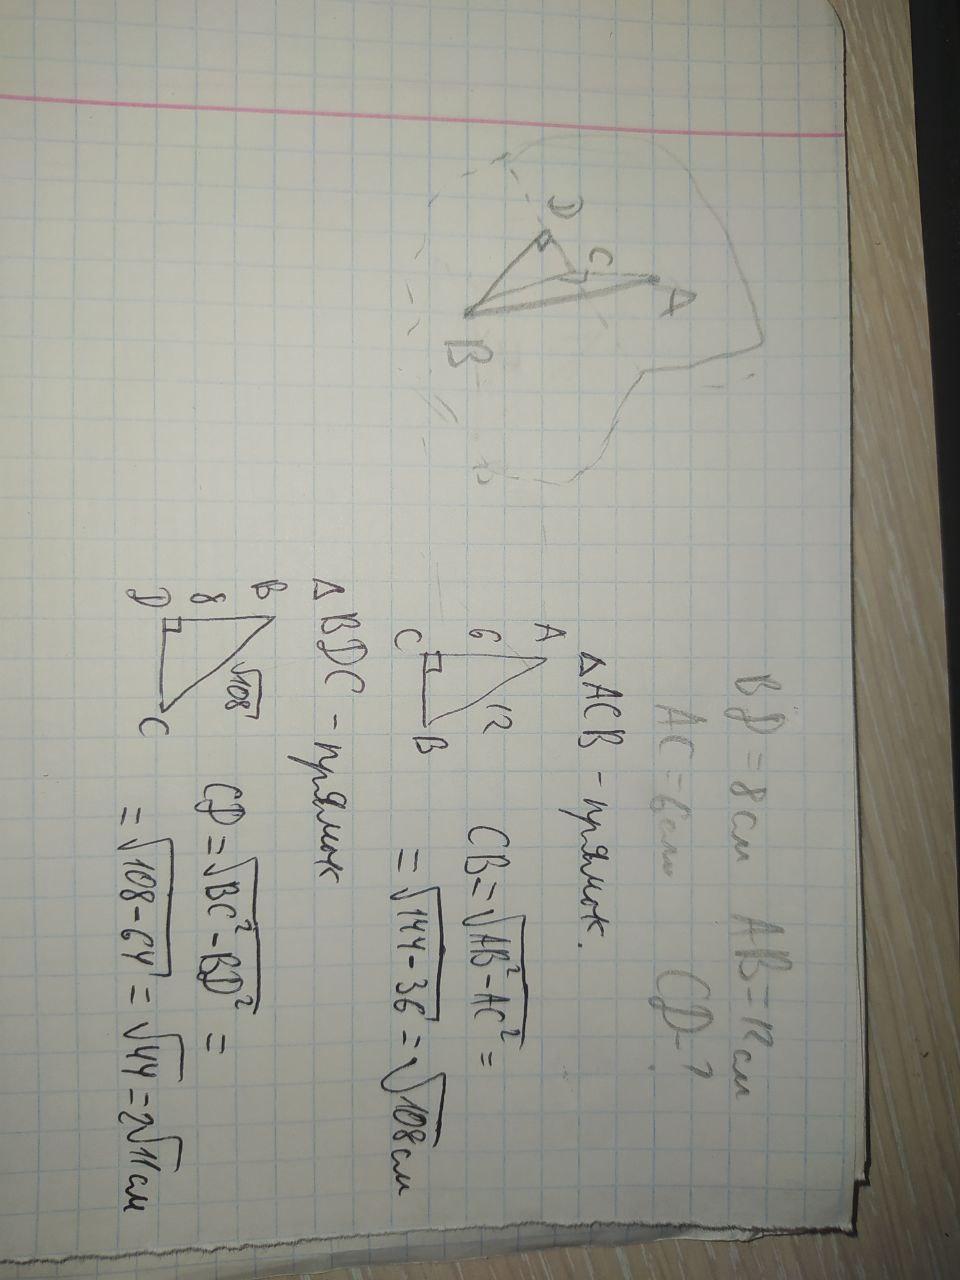 BD=8см AB=12см
AC=6см CD-?
A
C
D
B
△ACB - прямок.
A
6
12
C
B
CB=√AB²-AC² =
=√144-36=√108см
△BDC - прямок
B
8
√108
D
C
CD=√BC²-BD² =
=√108-64=√44=2√11см